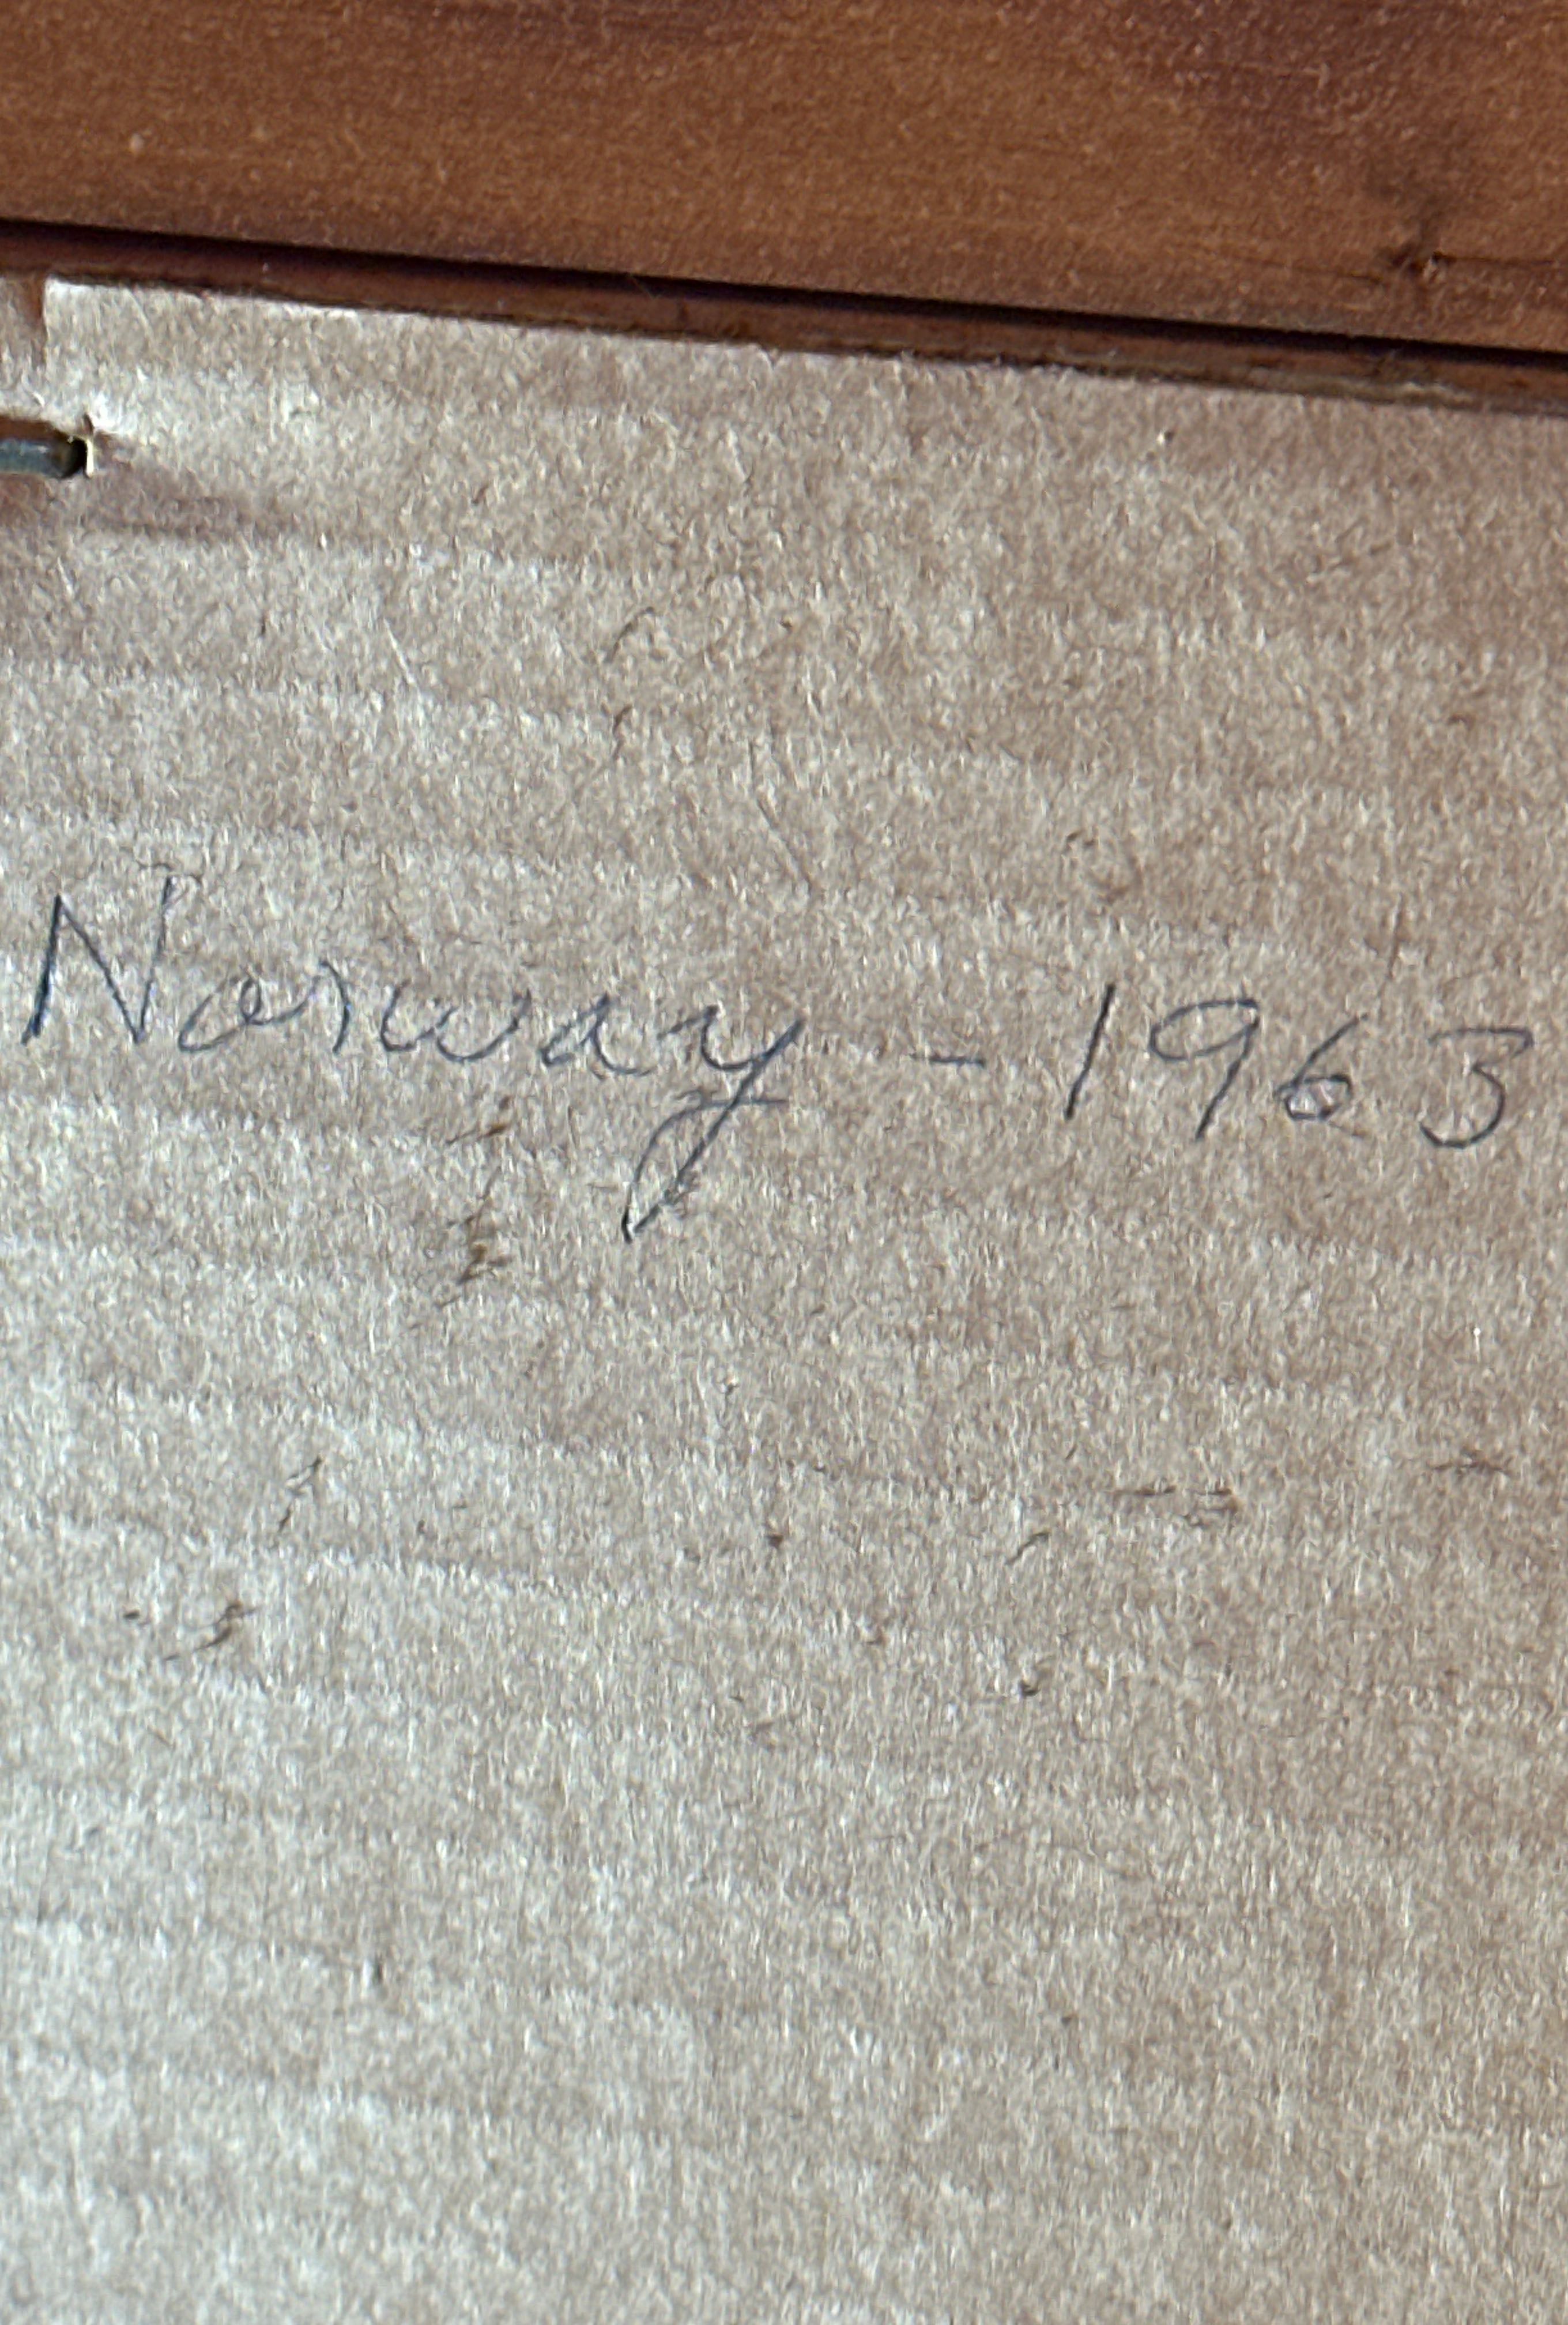 Norway - 1963